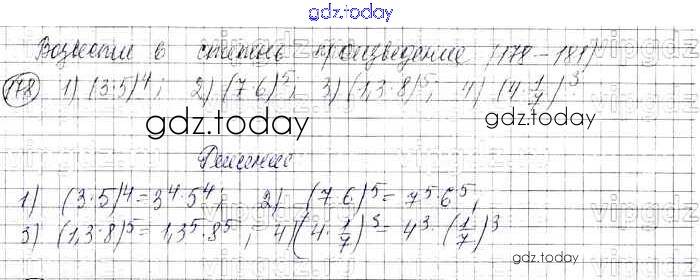 gdz.today
Возвести в степень произведение (178 – 181)
178 1) (3·5)⁴; 2) (7·6)⁵; 3) (1,3·8)⁵; 4) (4·1/7)³
gdz.today gdz.today
Решение
1) (3·5)⁴ = 3⁴·5⁴; 2) (7·6)⁵ = 7⁵·6⁵;
3) (1,3·8)⁵ = 1,3⁵·8⁵; 4) (4·1/7)³ = 4³·(1/7)³
gdz.today gdz.today